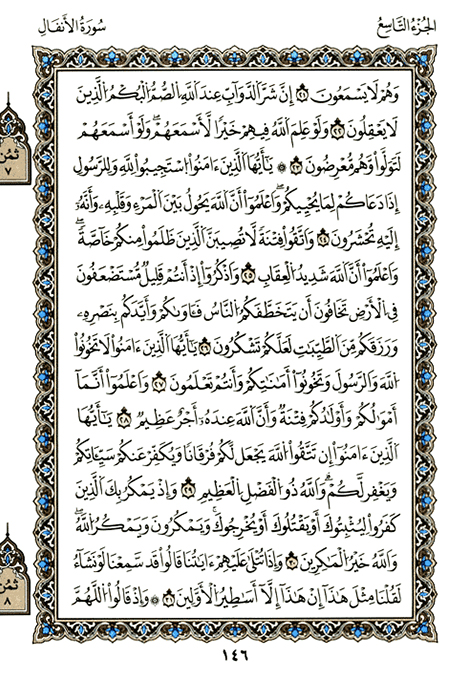 الجزء التاسع
سورة الأنفال
وَهُمْ لَا يَسْمَعُونَ ۝٢١ إِنَّ شَرَّ الدَّوَآبِّ عِندَ اللَّهِ الصُّمُّ الْبُكْمُ الَّذِينَ
لَا يَعْقِلُونَ ۝٢٢ وَلَوْ عَلِمَ اللَّهُ فِيهِمْ خَيْرًا لَّأَسْمَعَهُمْ ۖ وَلَوْ أَسْمَعَهُمْ
لَتَوَلَّوا وَّهُم مُّعْرِضُونَ ۝٢٣ ۞ يَٰٓأَيُّهَا الَّذِينَ ءَامَنُوا اسْتَجِيبُوا لِلَّهِ وَلِلرَّسُولِ
إِذَا دَعَاكُمْ لِمَا يُحْيِيكُمْ ۖ وَاعْلَمُوٓا أَنَّ اللَّهَ يَحُولُ بَيْنَ الْمَرْءِ وَقَلْبِهِۦ وَأَنَّهُۥٓ
إِلَيْهِ تُحْشَرُونَ ۝٢٤ وَاتَّقُوا فِتْنَةً لَّا تُصِيبَنَّ الَّذِينَ ظَلَمُوا مِنكُمْ خَآصَّةً ۖ
وَاعْلَمُوٓا أَنَّ اللَّهَ شَدِيدُ الْعِقَابِ ۝٢٥ وَاذْكُرُوٓا إِذْ أَنتُمْ قَلِيلٌ مُّسْتَضْعَفُونَ
فِي الْأَرْضِ تَخَافُونَ أَن يَتَخَطَّفَكُمُ النَّاسُ فَـَٔاوَىٰكُمْ وَأَيَّدَكُم بِنَصْرِهِۦ
وَرَزَقَكُم مِّنَ الطَّيِّبَٰتِ لَعَلَّكُمْ تَشْكُرُونَ ۝٢٦ يَٰٓأَيُّهَا الَّذِينَ ءَامَنُوا لَا تَخُونُوا
اللَّهَ وَالرَّسُولَ وَتَخُونُوٓا أَمَٰنَٰتِكُمْ وَأَنتُمْ تَعْلَمُونَ ۝٢٧ وَاعْلَمُوٓا أَنَّمَآ
أَمْوَٰلُكُمْ وَأَوْلَٰدُكُمْ فِتْنَةٌ وَأَنَّ اللَّهَ عِندَهُۥٓ أَجْرٌ عَظِيمٌ ۝٢٨ يَٰٓأَيُّهَا
الَّذِينَ ءَامَنُوٓا إِن تَتَّقُوا اللَّهَ يَجْعَل لَّكُمْ فُرْقَانًا وَيُكَفِّرْ عَنكُمْ سَيِّـَٔاتِكُمْ
وَيَغْفِرْ لَكُمْ ۗ وَاللَّهُ ذُو الْفَضْلِ الْعَظِيمِ ۝٢٩ وَإِذْ يَمْكُرُ بِكَ الَّذِينَ
كَفَرُوا لِيُثْبِتُوكَ أَوْ يَقْتُلُوكَ أَوْ يُخْرِجُوكَ ۚ وَيَمْكُرُونَ وَيَمْكُرُ اللَّهُ ۖ
وَاللَّهُ خَيْرُ الْمَٰكِرِينَ ۝٣٠ وَإِذَا تُتْلَىٰ عَلَيْهِمْ ءَايَٰتُنَا قَالُوا قَدْ سَمِعْنَا لَوْ نَشَآءُ
لَقُلْنَا مِثْلَ هَٰذَآ إِنْ هَٰذَآ إِلَّآ أَسَٰطِيرُ الْأَوَّلِينَ ۝٣١ ۞ وَإِذْ قَالُوا اللَّهُمَّ
ثمن
٧
ثمن
٨
١٤٦